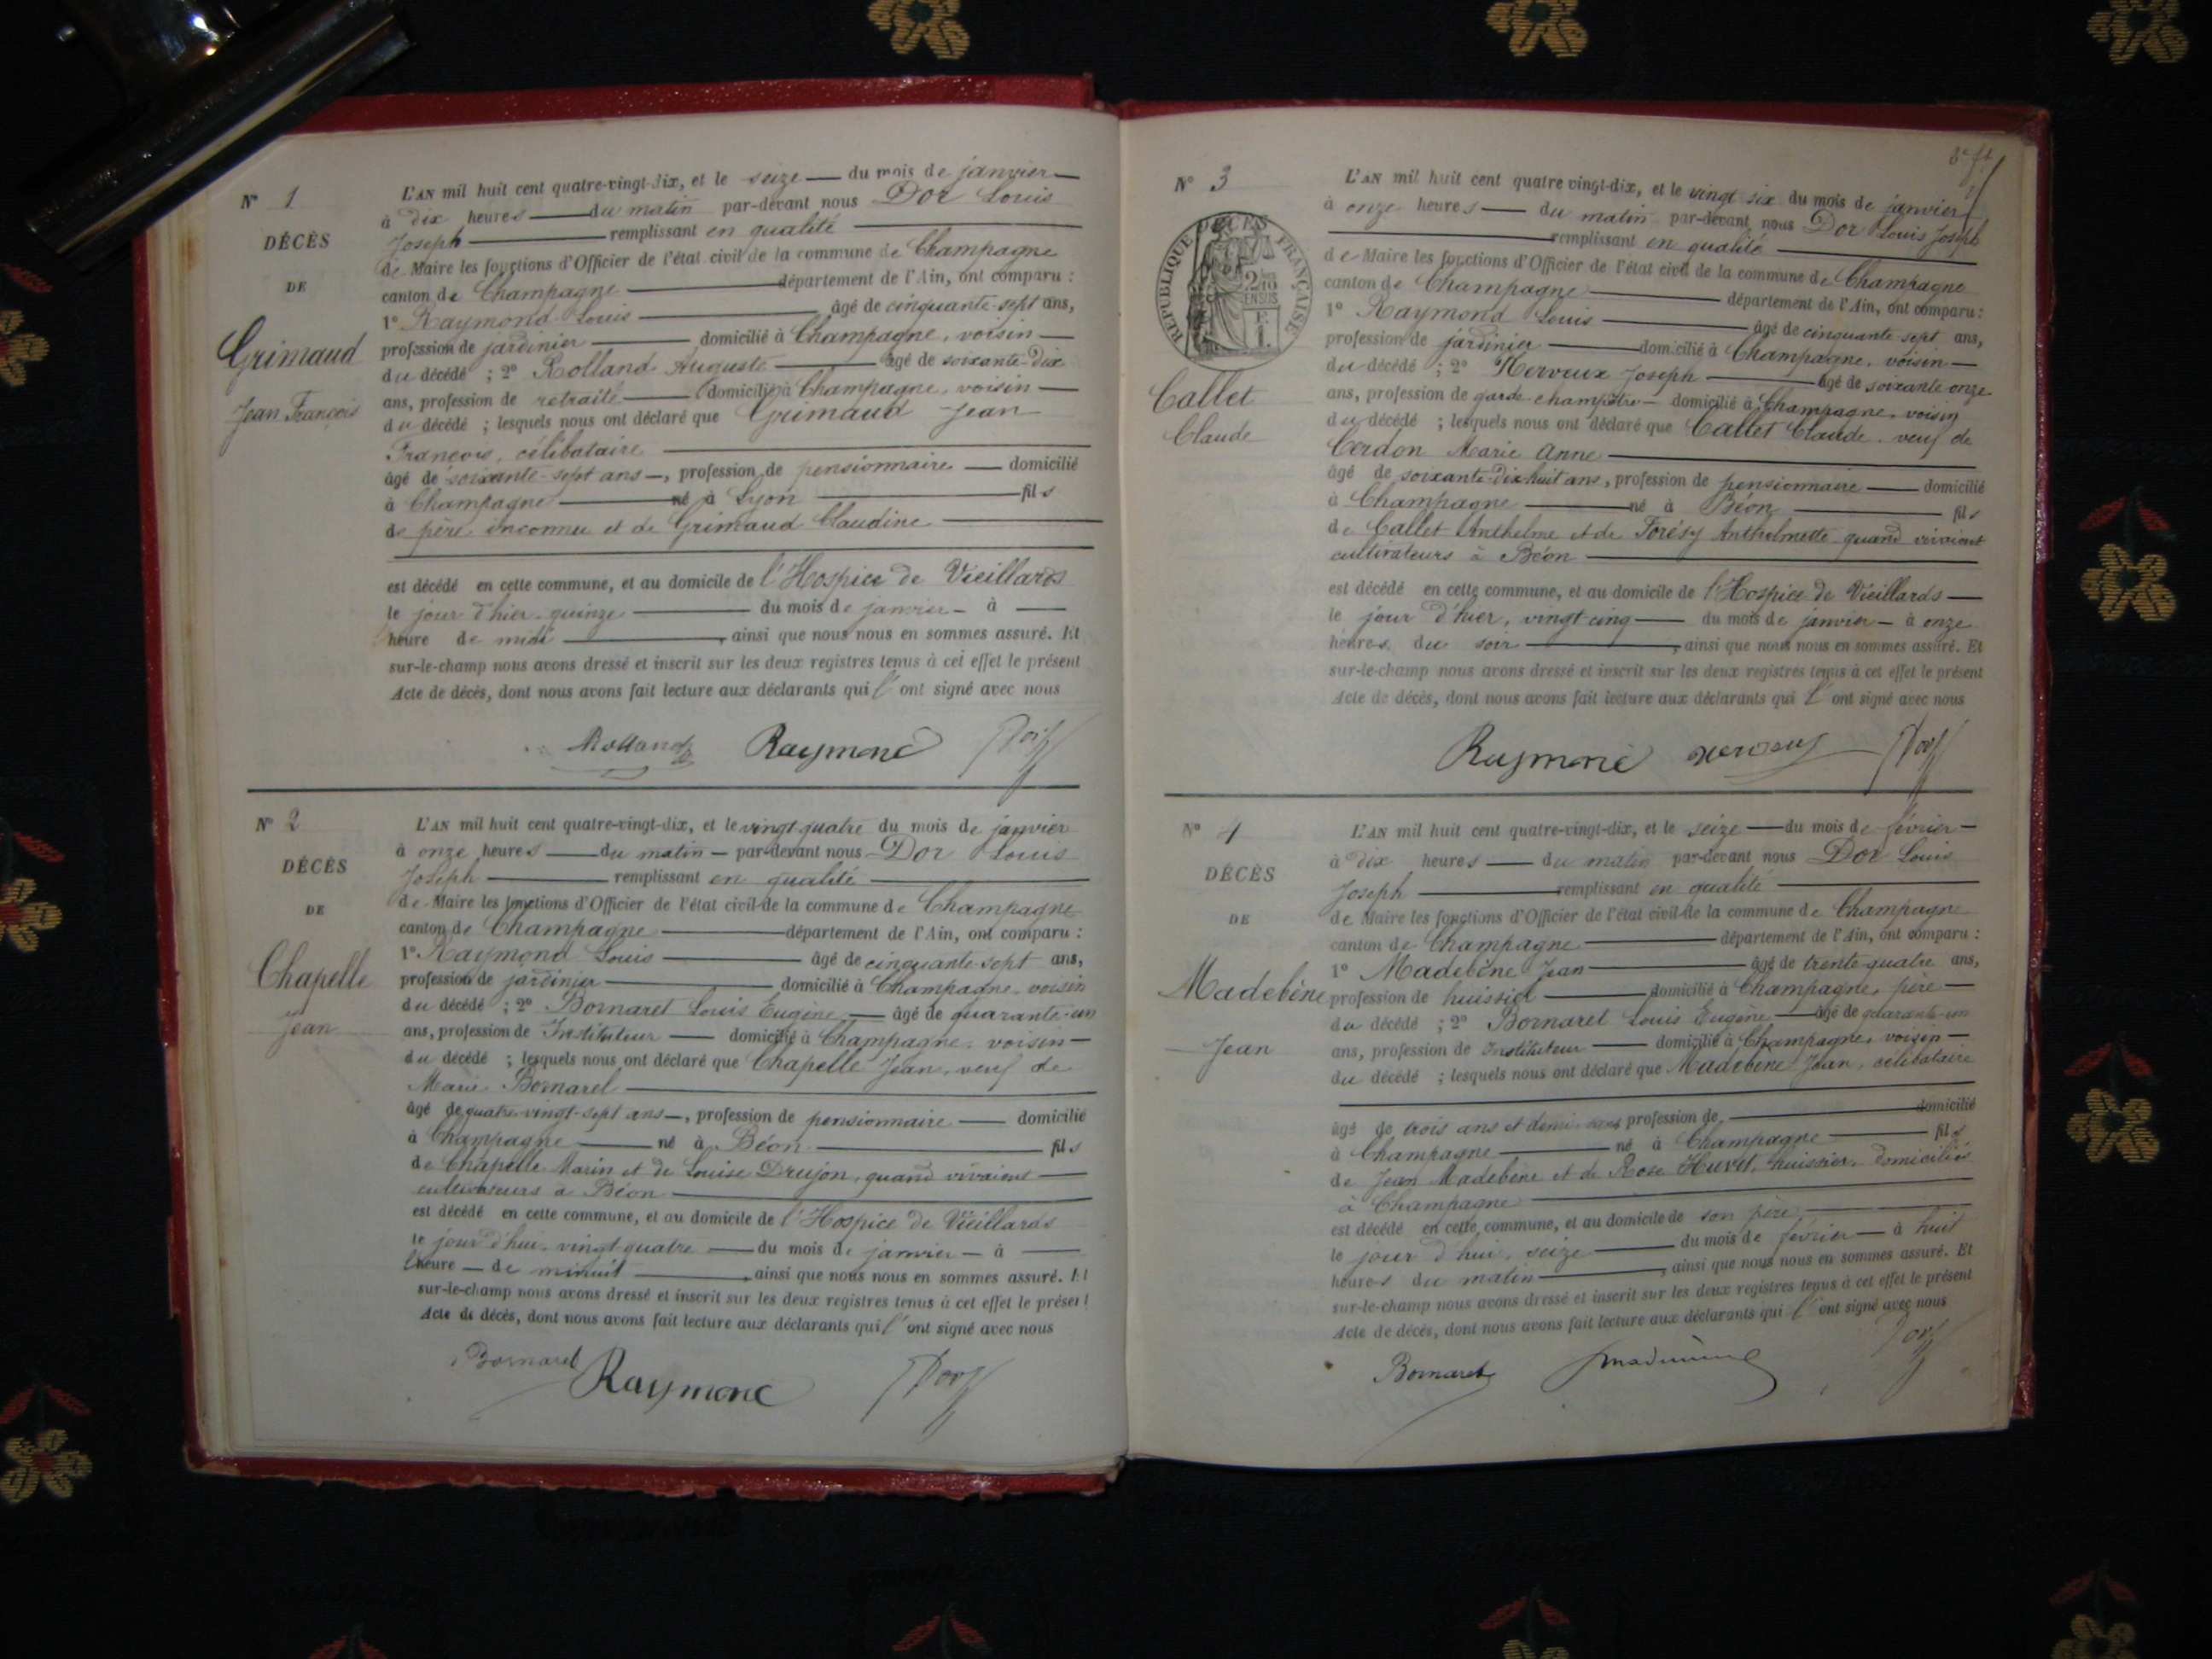 N° 1
DÉCÈS
DE
Grimaud
Jean François
L'AN mil huit cent quatre-vingt-dix, et le seize du mois de janvier
à dix heures du matin par-devant nous Dor Louis
Joseph remplissant en qualité
de Maire les fonctions d'Officier de l'état civil de la commune de Champagne
canton de Champagne département de l'Ain, ont comparu :
1° Raymond Louis âgé de cinquante-sept ans,
profession de jardinier domicilié à Champagne, voisin
du décédé ; 2° Rolland Auguste âgé de soixante-dix
ans, profession de retraité domicilié à Champagne, voisin
du décédé ; lesquels nous ont déclaré que Grimaud Jean
François, célibataire
âgé de soixante-sept ans, profession de pensionnaire domicilié
à Champagne né à Lyon fils
de père inconnu et de Grimaud Claudine
est décédé en cette commune, et au domicile de l'Hospice de Vieillards
le jour d'hier, quinze du mois de janvier à
heure de midi, ainsi que nous nous en sommes assuré. Et
sur-le-champ nous avons dressé et inscrit sur les deux registres tenus à cet effet le présent
Acte de décès, dont nous avons fait lecture aux déclarants qui l'ont signé avec nous
Rolland Raymond Dor
N° 2
DÉCÈS
DE
Chapelle
Jean
L'AN mil huit cent quatre-vingt-dix, et le vingt quatre du mois de janvier
à onze heures du matin par-devant nous Dor Louis
Joseph remplissant en qualité
de Maire les fonctions d'Officier de l'état civil de la commune de Champagne
canton de Champagne département de l'Ain, ont comparu :
1° Raymond Louis âgé de cinquante-sept ans,
profession de jardinier domicilié à Champagne, voisin
du décédé ; 2° Bornaret Louis Eugène âgé de quarante-un
ans, profession de Instituteur domicilié à Champagne, voisin
du décédé ; lesquels nous ont déclaré que Chapelle Jean, veuf de
Marie Bornarel
âgé de quatre-vingt-sept ans, profession de pensionnaire domicilié
à Champagne né à Béon fils
de Chapelle Marin et de Louise Drujon, quand vivaient
cultivateurs à Béon
est décédé en cette commune, et au domicile de l'Hospice de Vieillards
le jour d'hui, vingt-quatre du mois de janvier à
l'heure de minuit, ainsi que nous nous en sommes assuré. Et
sur-le-champ nous avons dressé et inscrit sur les deux registres tenus à cet effet le présent
Acte de décès, dont nous avons fait lecture aux déclarants qui l'ont signé avec nous
Bornaret Raymond Dor
N° 3
RÉPUBLIQUE FRANÇAISE
DÉCÈS
2/10 EN SUS
Callet
Claude
L'AN mil huit cent quatre vingt-dix, et le vingt six du mois de janvier
à onze heures du matin par-devant nous Dor Louis Joseph
remplissant en qualité
de Maire les fonctions d'Officier de l'état civil de la commune de Champagne
canton de Champagne département de l'Ain, ont comparu :
1° Raymond Louis âgé de cinquante-sept ans,
profession de jardinier domicilié à Champagne, voisin
du décédé ; 2° Nerveux Joseph âgé de soixante-onze
ans, profession de garde champêtre domicilié à Champagne, voisin
du décédé ; lesquels nous ont déclaré que Callet Claude, veuf de
Cerdon Marie Anne
âgé de soixante-dix huit ans, profession de pensionnaire domicilié
à Champagne né à Béon fils
de Callet Anthelme et de Forésy Anthelmette quand vivaient
cultivateurs à Béon
est décédé en cette commune, et au domicile de l'Hospice de Vieillards
le jour d'hier, vingt-cinq du mois de janvier à onze
heures du soir, ainsi que nous nous en sommes assuré. Et
sur-le-champ nous avons dressé et inscrit sur les deux registres tenus à cet effet le présent
Acte de décès, dont nous avons fait lecture aux déclarants qui l'ont signé avec nous
Raymond Nerveux Dor
N° 4
DÉCÈS
DE
Madebène
Jean
L'AN mil huit cent quatre-vingt-dix, et le seize du mois de février
à dix heures du matin par-devant nous Dor Louis
Joseph remplissant en qualité
de Maire les fonctions d'Officier de l'état civil de la commune de Champagne
canton de Champagne département de l'Ain, ont comparu :
1° Madebène Jean âgé de trente-quatre ans,
profession de huissier domicilié à Champagne, père
du décédé ; 2° Bornaret Louis Eugène âgé de quarante-un
ans, profession de Instituteur domicilié à Champagne, voisin
du décédé ; lesquels nous ont déclaré que Madebène Jean, célibataire
âgé de trois ans et demi sans profession de domicilié
à Champagne né à Champagne fils
de Jean Madebène et de Rose Huvet, huissier, domiciliés
à Champagne
est décédé en cette commune, et au domicile de son père
le jour d'hui, seize du mois de février à huit
heures du matin, ainsi que nous nous en sommes assuré. Et
sur-le-champ nous avons dressé et inscrit sur les deux registres tenus à cet effet le présent
Acte de décès, dont nous avons fait lecture aux déclarants qui l'ont signé avec nous
Bornaret Dor